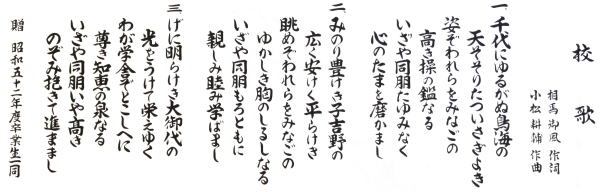 校歌
相馬御風 作詞
小松耕輔 作曲
一、千代にゆるがぬ鳥海の
天そそりたついさぎよき
姿ぞわれらをみなごの
高き操の鑑なる
いざや同朋たゆみなく
心のたまを磨かまし
二、みのり豊けき子吉野の
広く安けく平らけき
眺めぞわれらをみなごの
ゆかしき胸のしるしなる
いざや同朋もろともに
親しみ睦み学ばまし
三、げに明らけき大御代の
光をうけて栄えゆく
わが学舎ぞとこしへに
尊き知恵の泉なる
いざや同朋いや高き
のぞみ抱きて進ままし
贈 昭和五十二年度卒業生一同